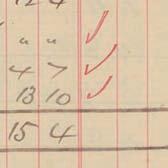 12 4
" "
4 7
13 10
15 4